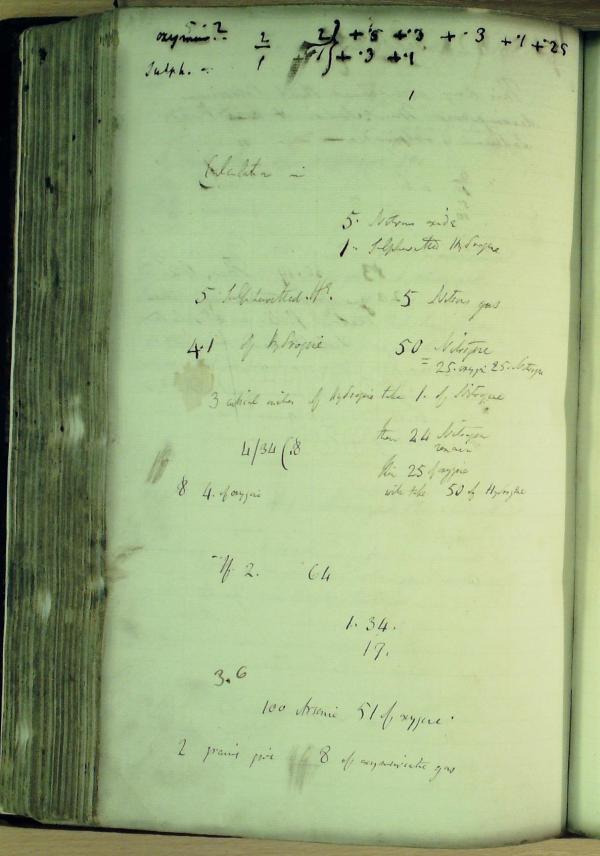 oxymur. 2 2 2} + 5 + .3 + .3 + .1 + 25
Sulph. 1 +1} + .3 + .1
1
Calculation in
5. Nitrous oxide
1. Sulphuretted Hydrogene
5 Sulphuretted H. 5 Nitrous gas
4.1 of hydrogene 50 Nitrogene
= 25. oxygene 25. Nitrogene
3 cubical inches of Hydrogene take 1. of Nitrogene
4/34(.8 then 24 Nitrogen
remain
8 4. of oxygene then 25 of oxygene
will take 50 of Hydrogene
If 2. 64
1. 34.
17.
3.6
100 Arsenic 51 of oxygene.
2 grains give 8 of oxymuriatic gas